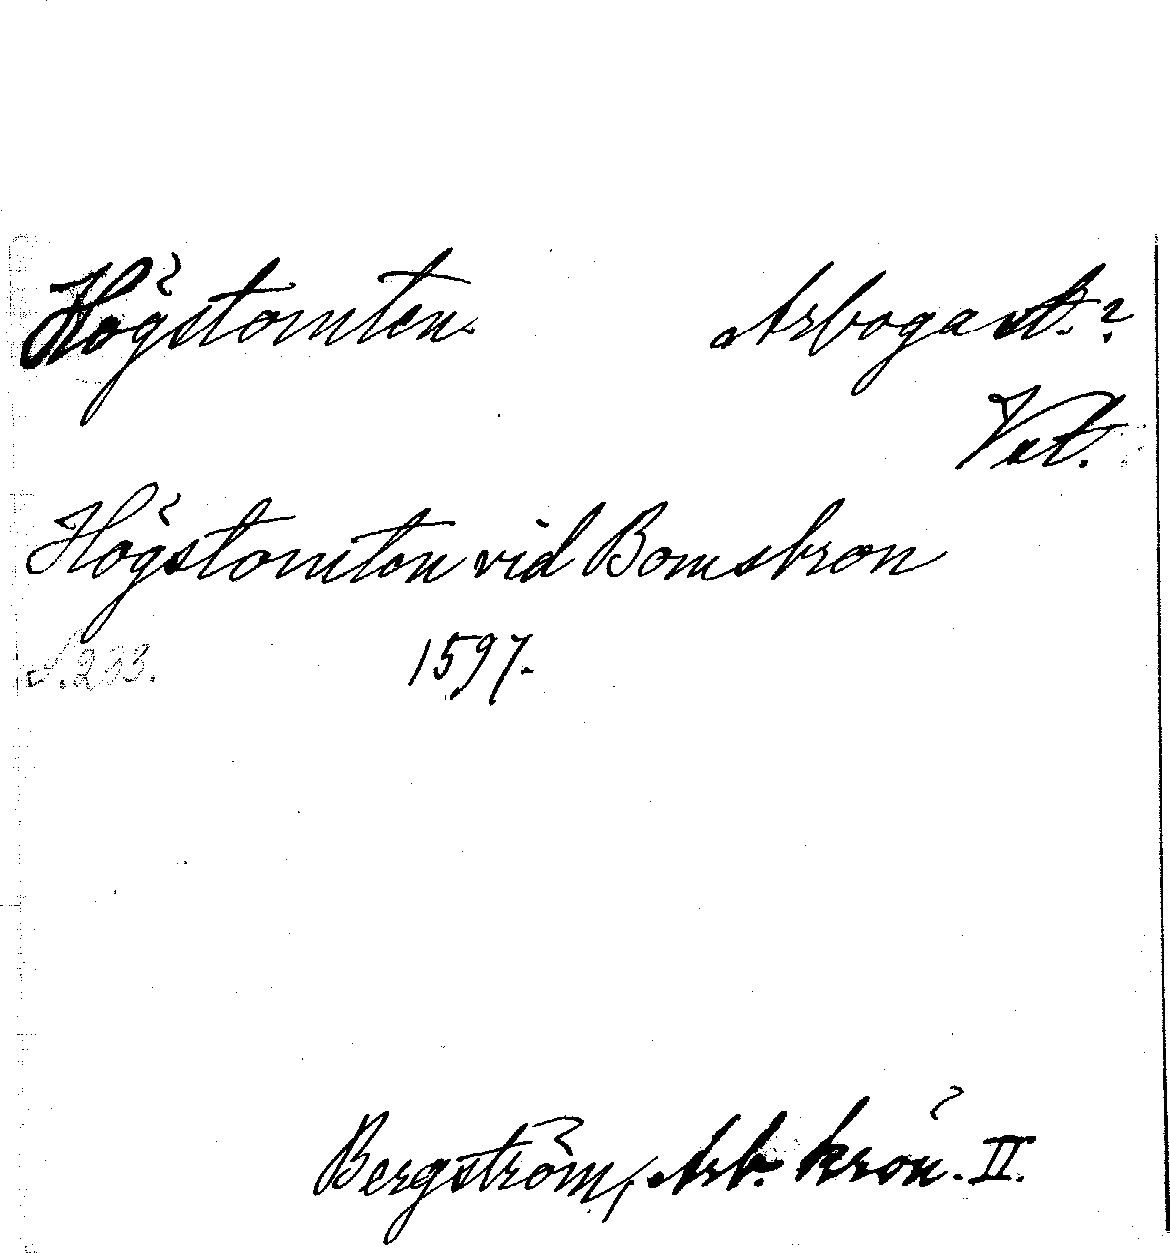 Högstomten. Arboga st.?
Vstl.
Högstomten vid Bomsbron
S. 233. 1597.
Bergström, Arb. krön. II.